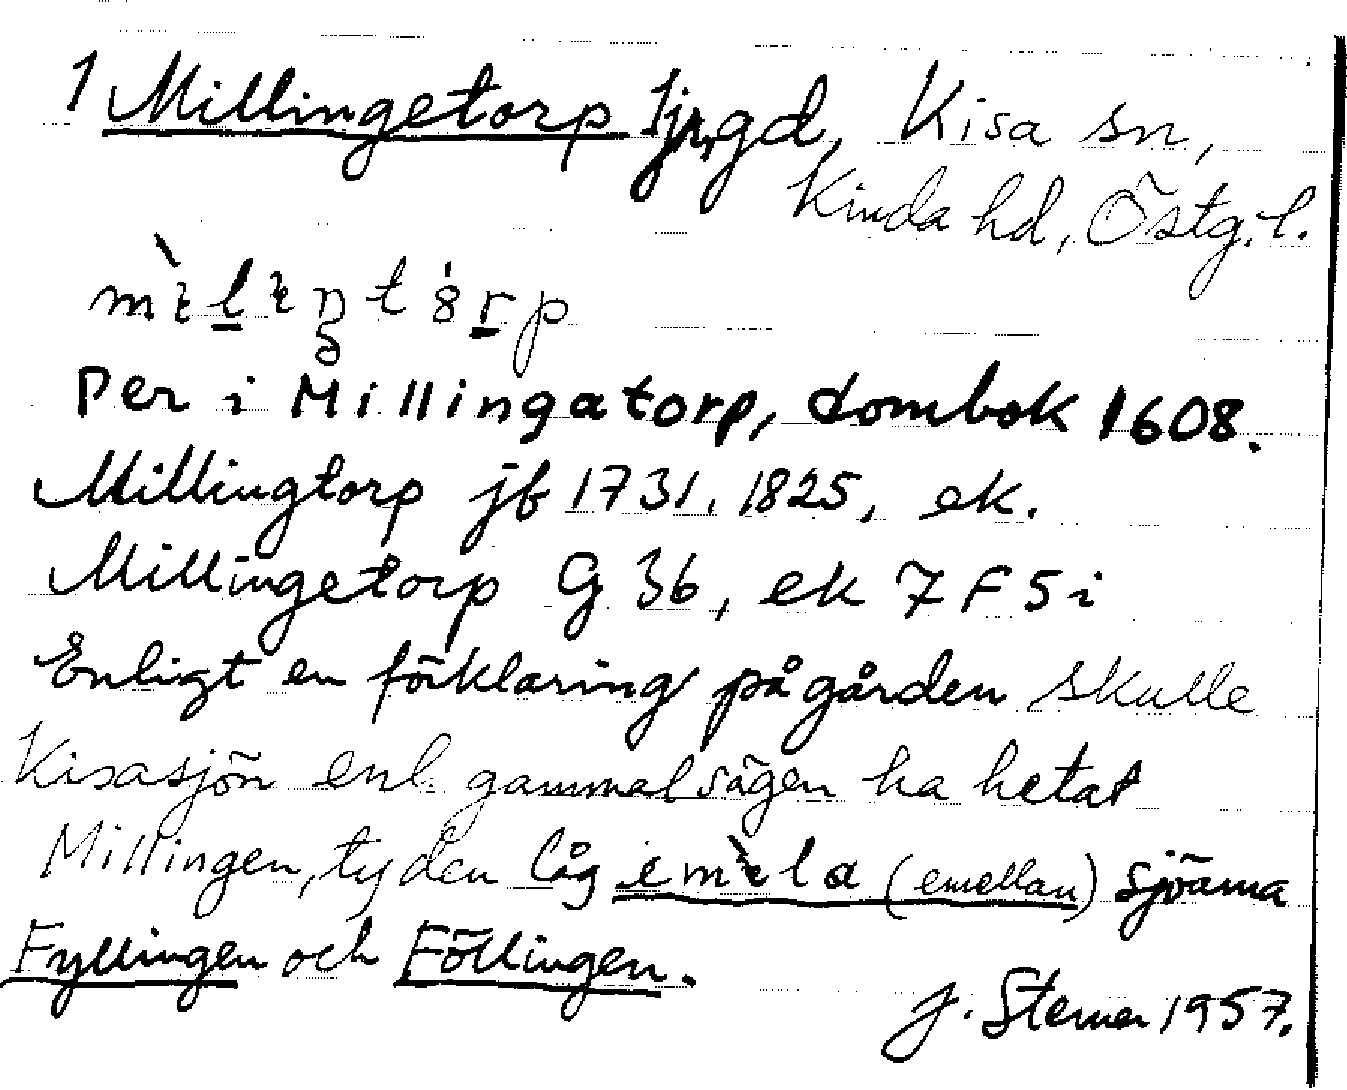 1 Millingetorp hrgd, Kisa sn,
Kinda hd, Östg. l.
Per i Millingatorp, dombok 1608.
Millingtorp jb 1731, 1825, ek.
Millingetorp G 36, ek 7 F 5 i
Enligt en förklaring på gården skulle
Kisasjön enl. gammal sägen ha hetat
Millingen, ty den låg emela (emellan) sjöarna
Fyllingen och Föllingen.
J. Sterner 1957.